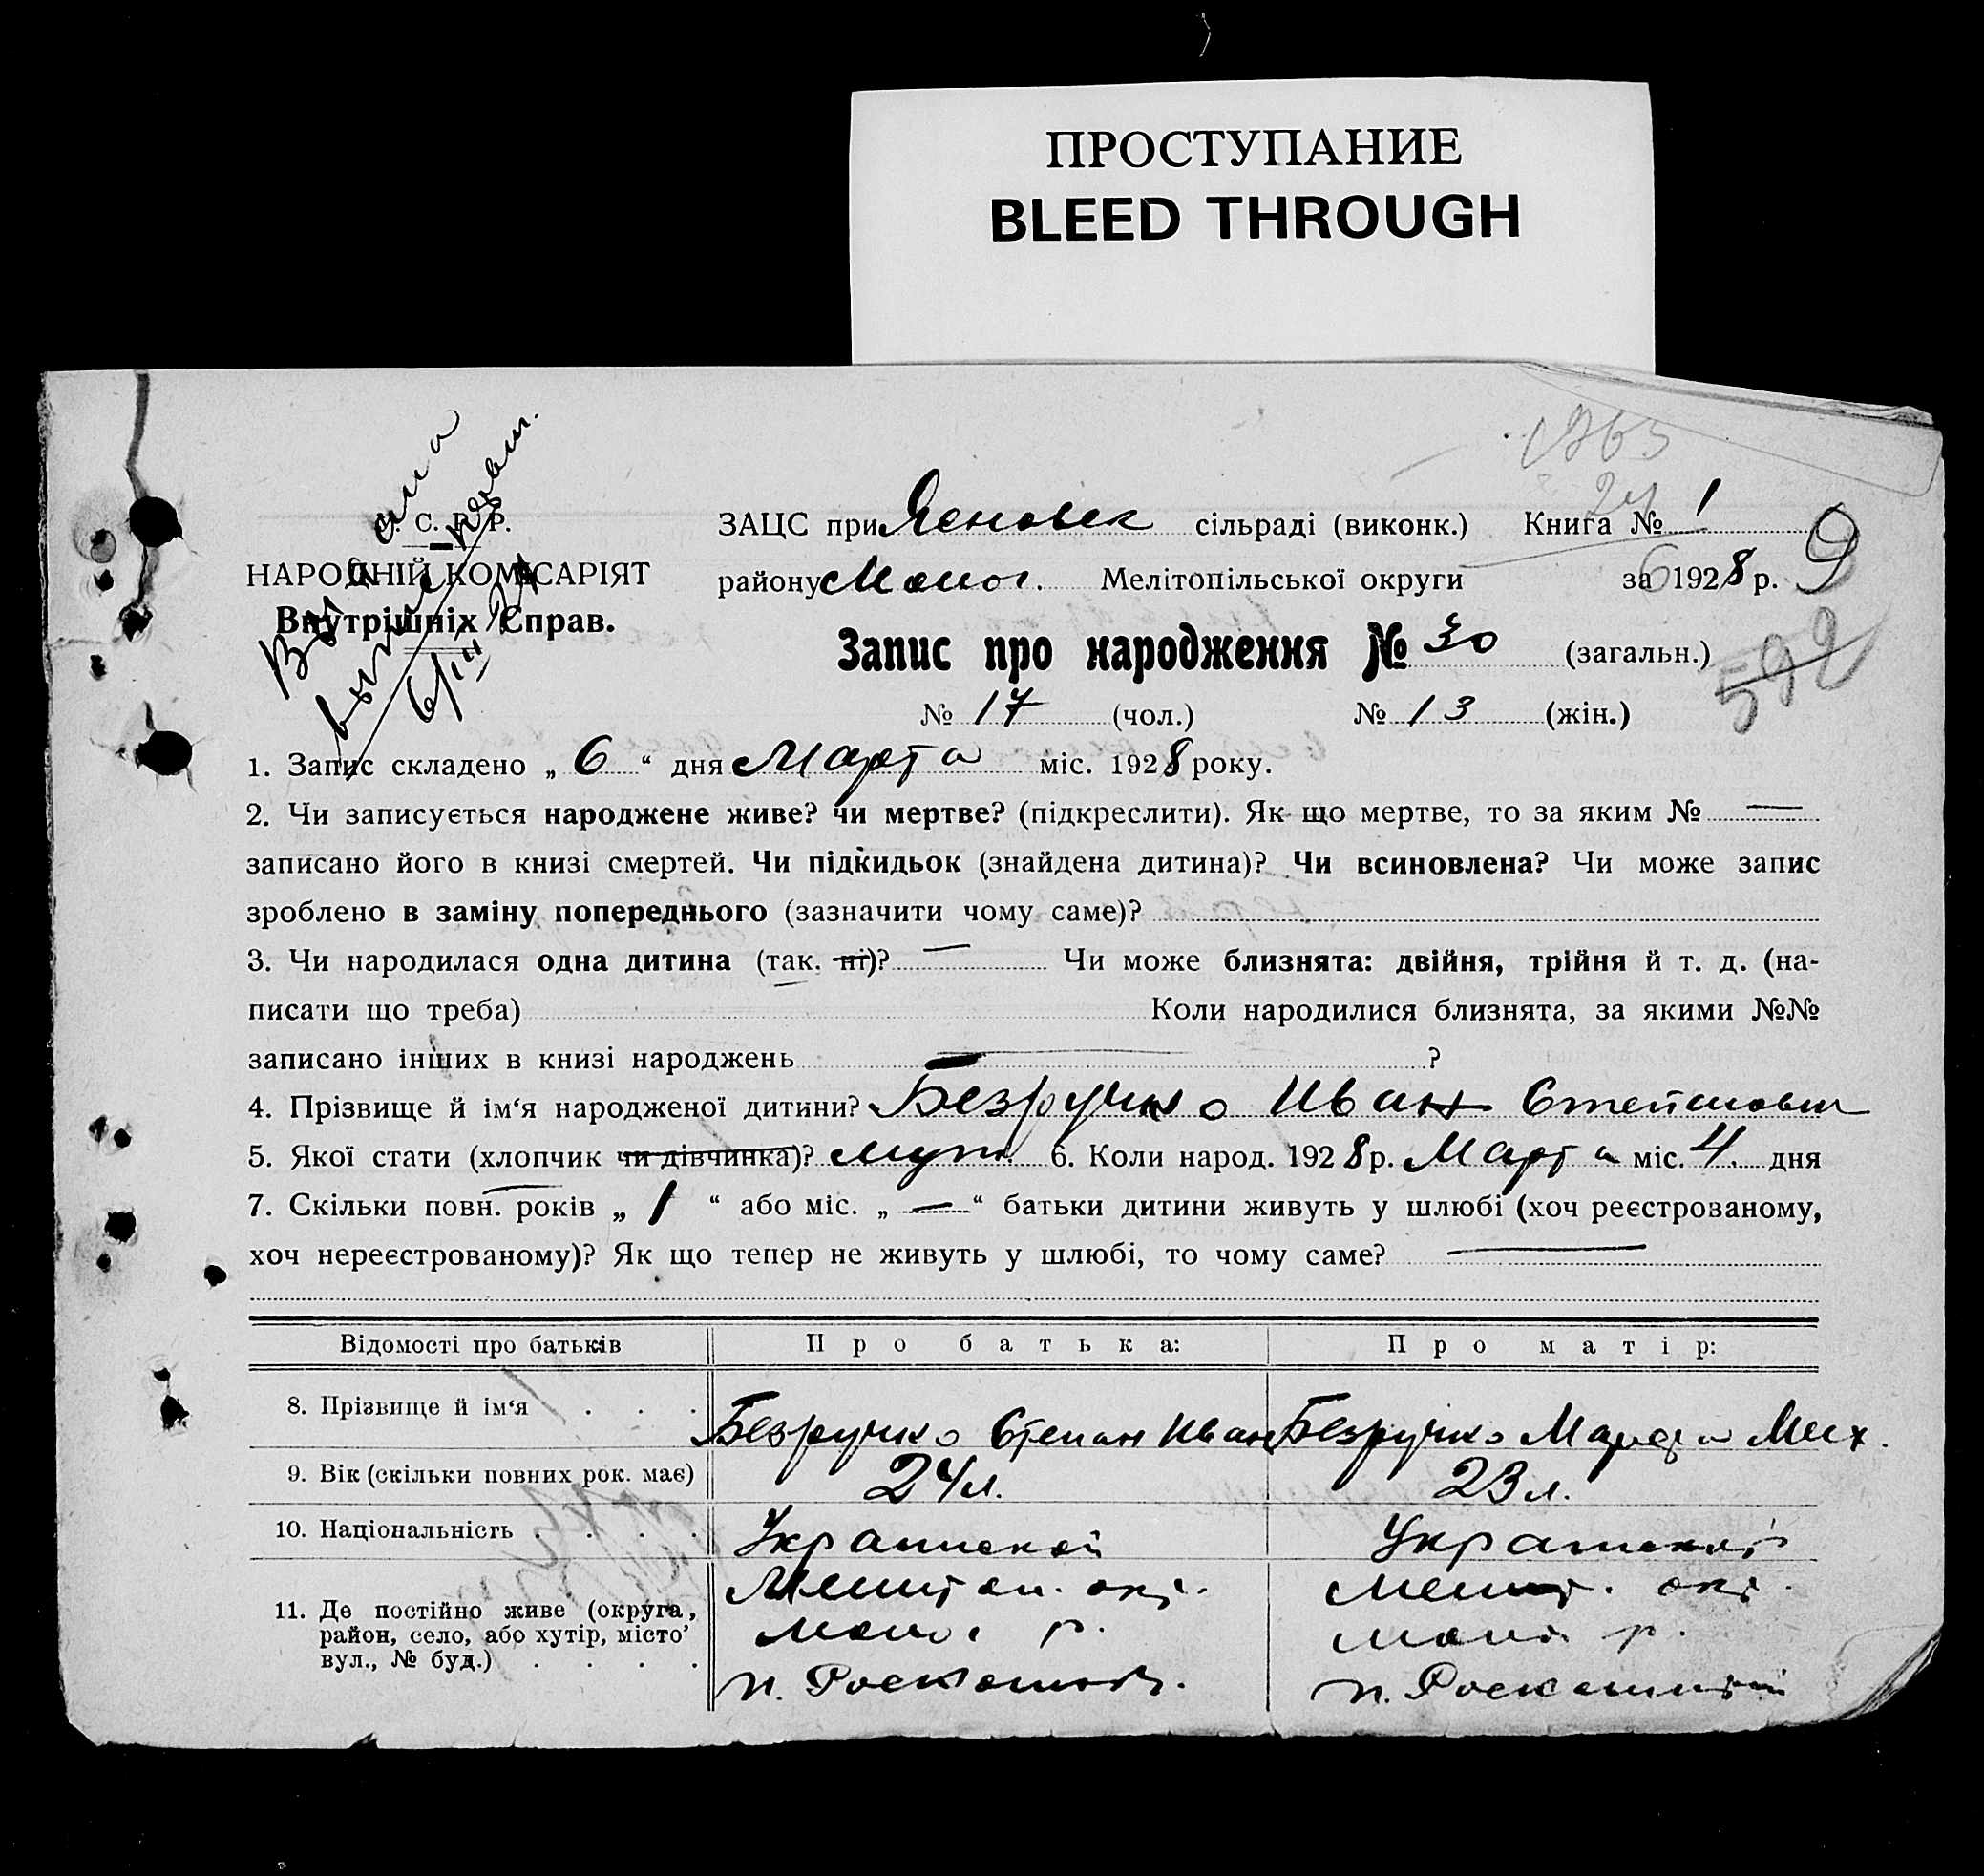 ПРОСТУПАНИЕ
BLEED THROUGH
1965
24
У. С. Р. Р.
НАРОДНІЙ КОМІСАРІЯТ
Внутрішніх Справ.
6/III 28
ЗАЦС при Ясновск сільраді (виконк.) Книга № 1
району Маног. Мелітопільської округи за 1928 р.
9
Запис про народження № 30 (загальн.)
592
№ 17 (чол.) № 13 (жін.)
1. Запис складено „ 6 “ дня Марта міс. 1928 року.
2. Чи записується народжене живе? чи мертве? (підкреслити). Як що мертве, то за яким № —
записано його в книзі смертей. Чи підкидьок (знайдена дитина)? Чи всиновлена? Чи може запис
зроблено в заміну попереднього (зазначити чому саме)?
3. Чи народилася одна дитина (так. ні)? — Чи може близнята: двійня, трійня й т. д. (на-
писати що треба) Коли народилися близнята, за якими №№
записано інших в книзі народжень — ?
4. Прізвище й ім‘я народженої дитини? Безручко Иван Степанович
5. Якої стати (хлопчик чи дівчинка)? муж. 6. Коли народ. 1928 р. Марта міс. 4. дня
7. Скільки повн. років „ 1 “ або міс. „ — “ батьки дитини живуть у шлюбі (хоч реєстрованому,
хоч нереєстрованому)? Як що тепер не живуть у шлюбі, то чому саме? —
Відомості про батьків Про батька: Про матір:
8. Прізвище й ім‘я . . . Безручко Степан Иван Безручко Марфа Мих.
9. Вік (скільки повних рок. має) 24 л. 23 л.
10. Національність . . . . Украинской Украинской
11. Де постійно живе (округа, район, село, або хутір, місто’ вул., № буд.) . . . . Мелитоп. окр. Мелит. окр.
р. р.
п. п.